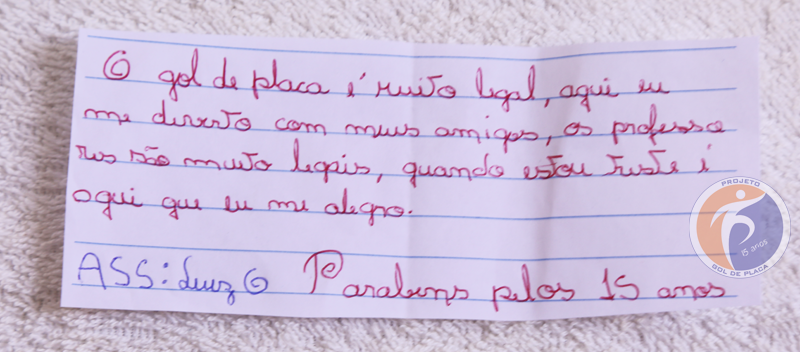 O gol de placa é muito legal, aqui eu
me divirto com meus amigos, os professo
res são muito legais, quando estou triste é
aqui que eu me alegro.
ASS: Luiz O Parabens pelos 15 anos
PROJETO
15 anos
GOL DE PLACA